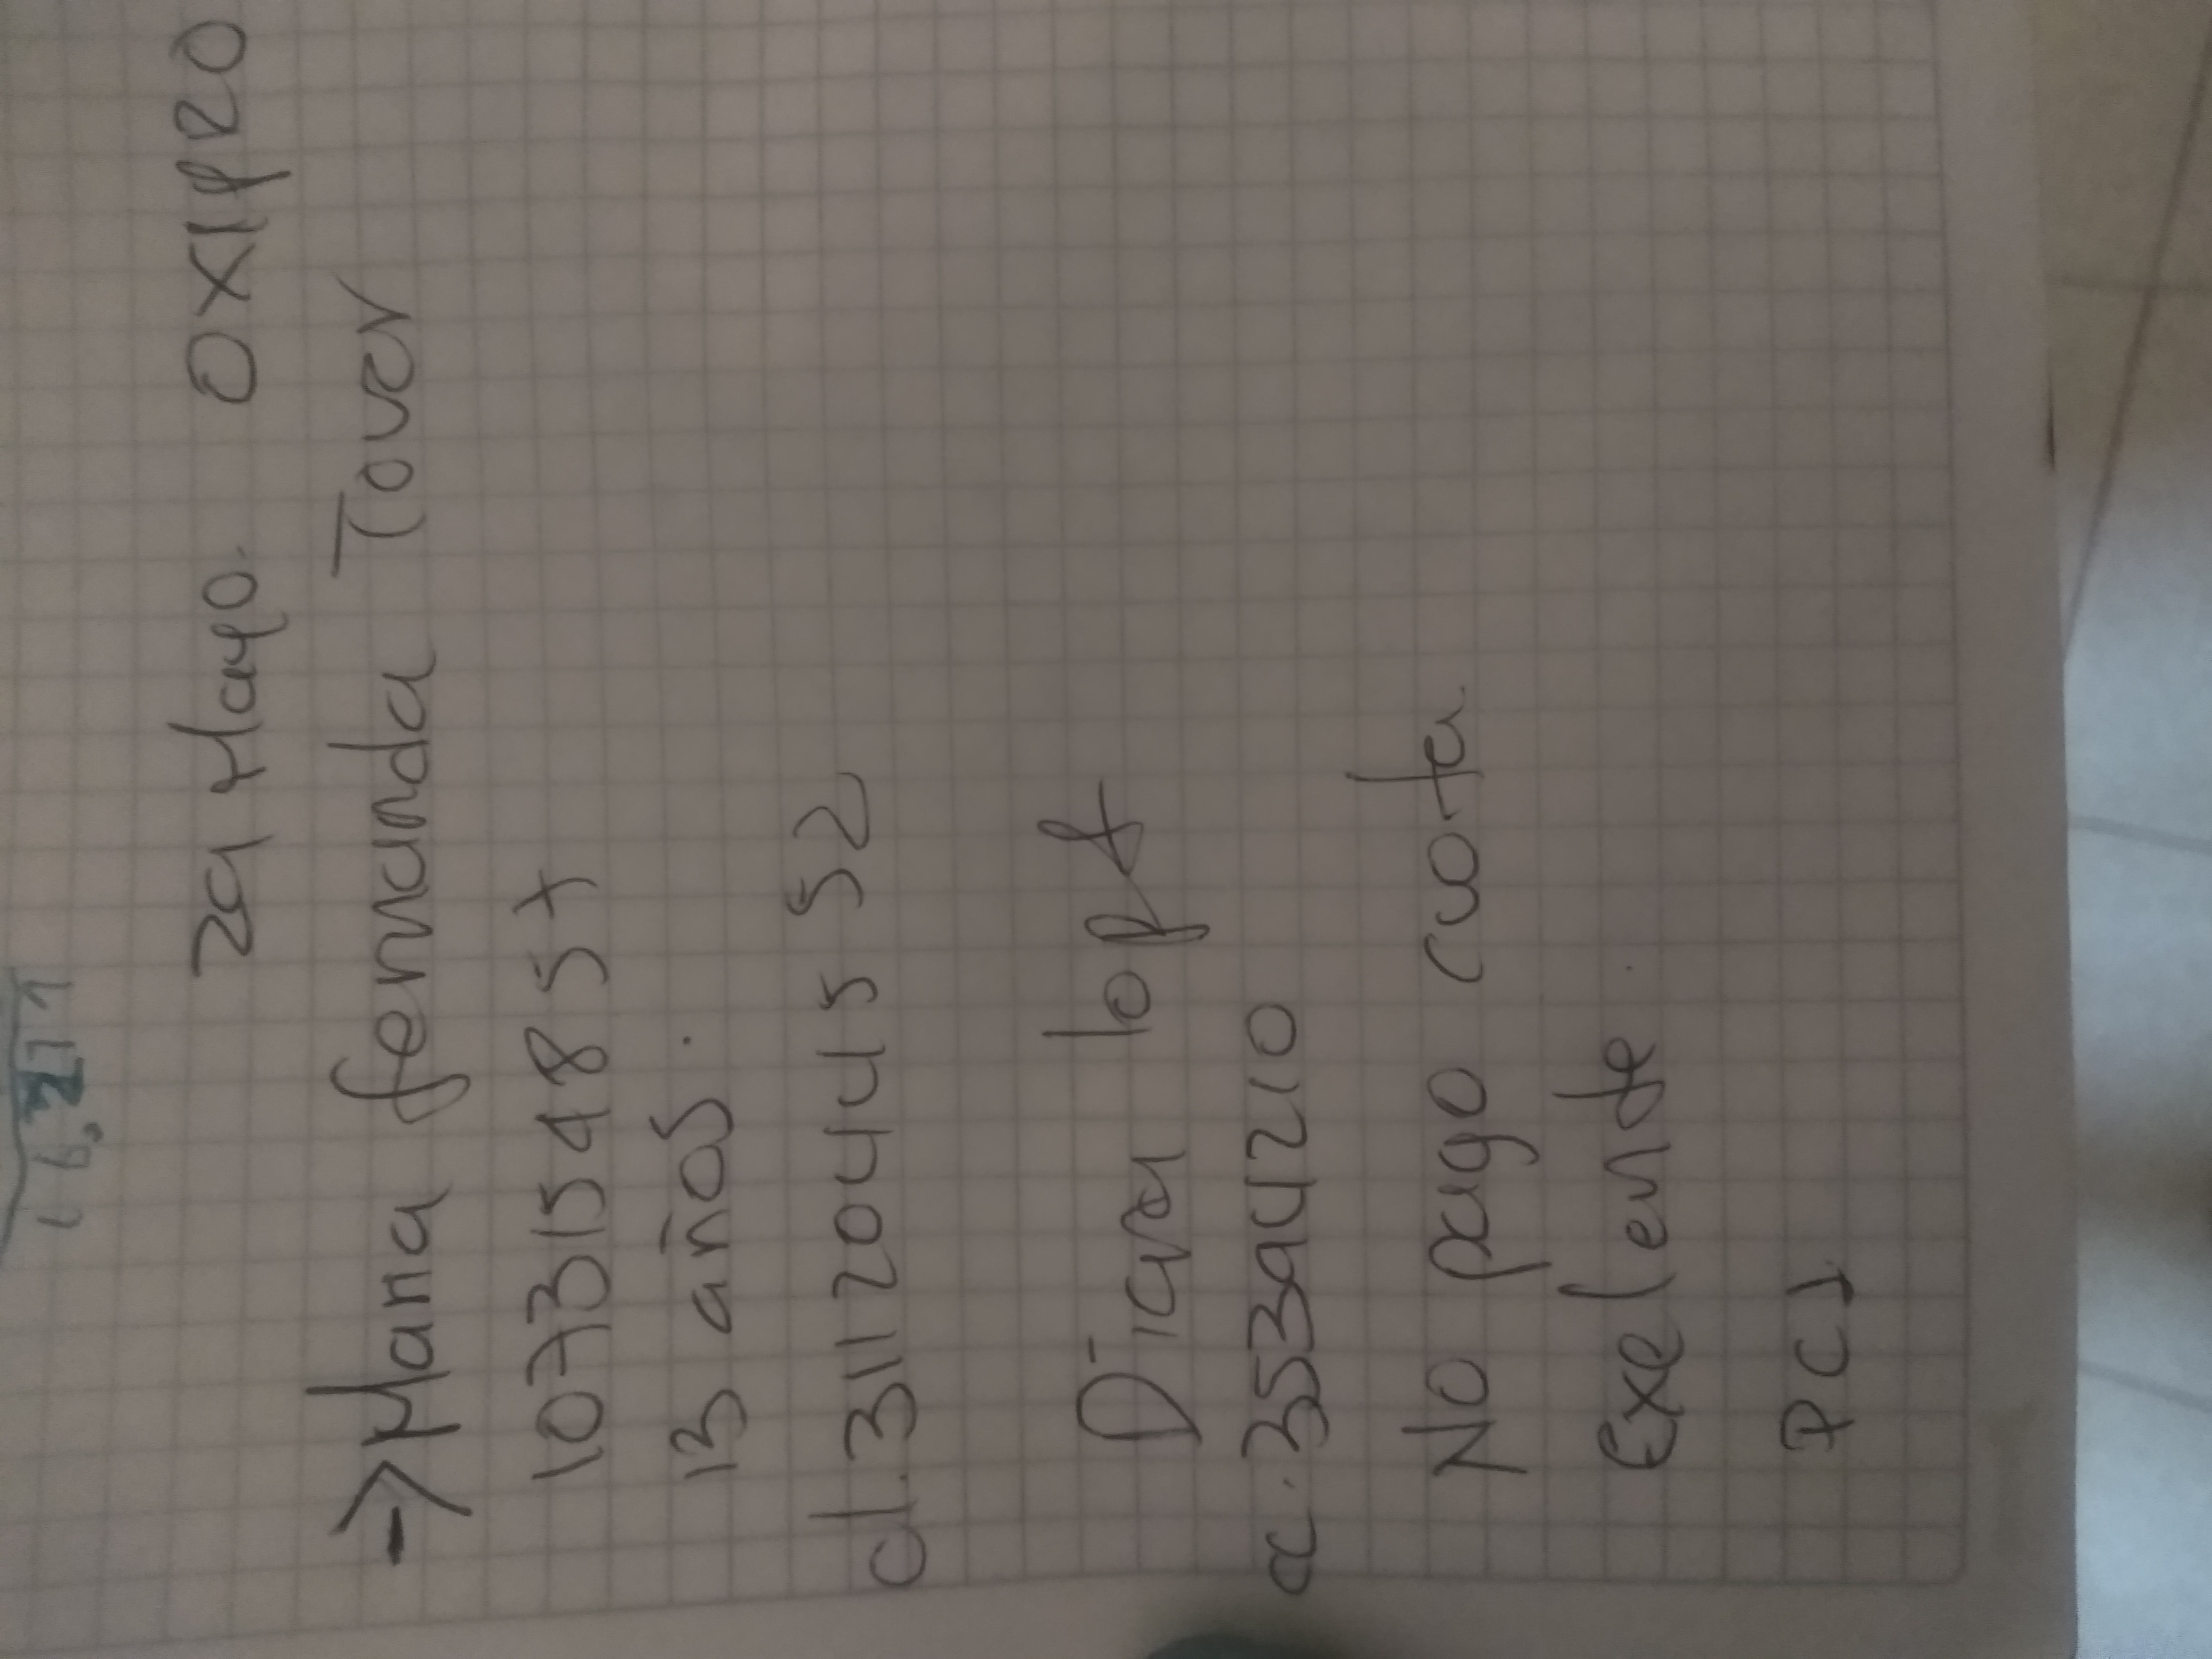 29 Mayo. OXIPRO
→ Maria fernanda Tovar
1073154857
13 años.
cl. 3112044552
Diana
cc. 35394210
No pago cuota.
Exelente.
PCI